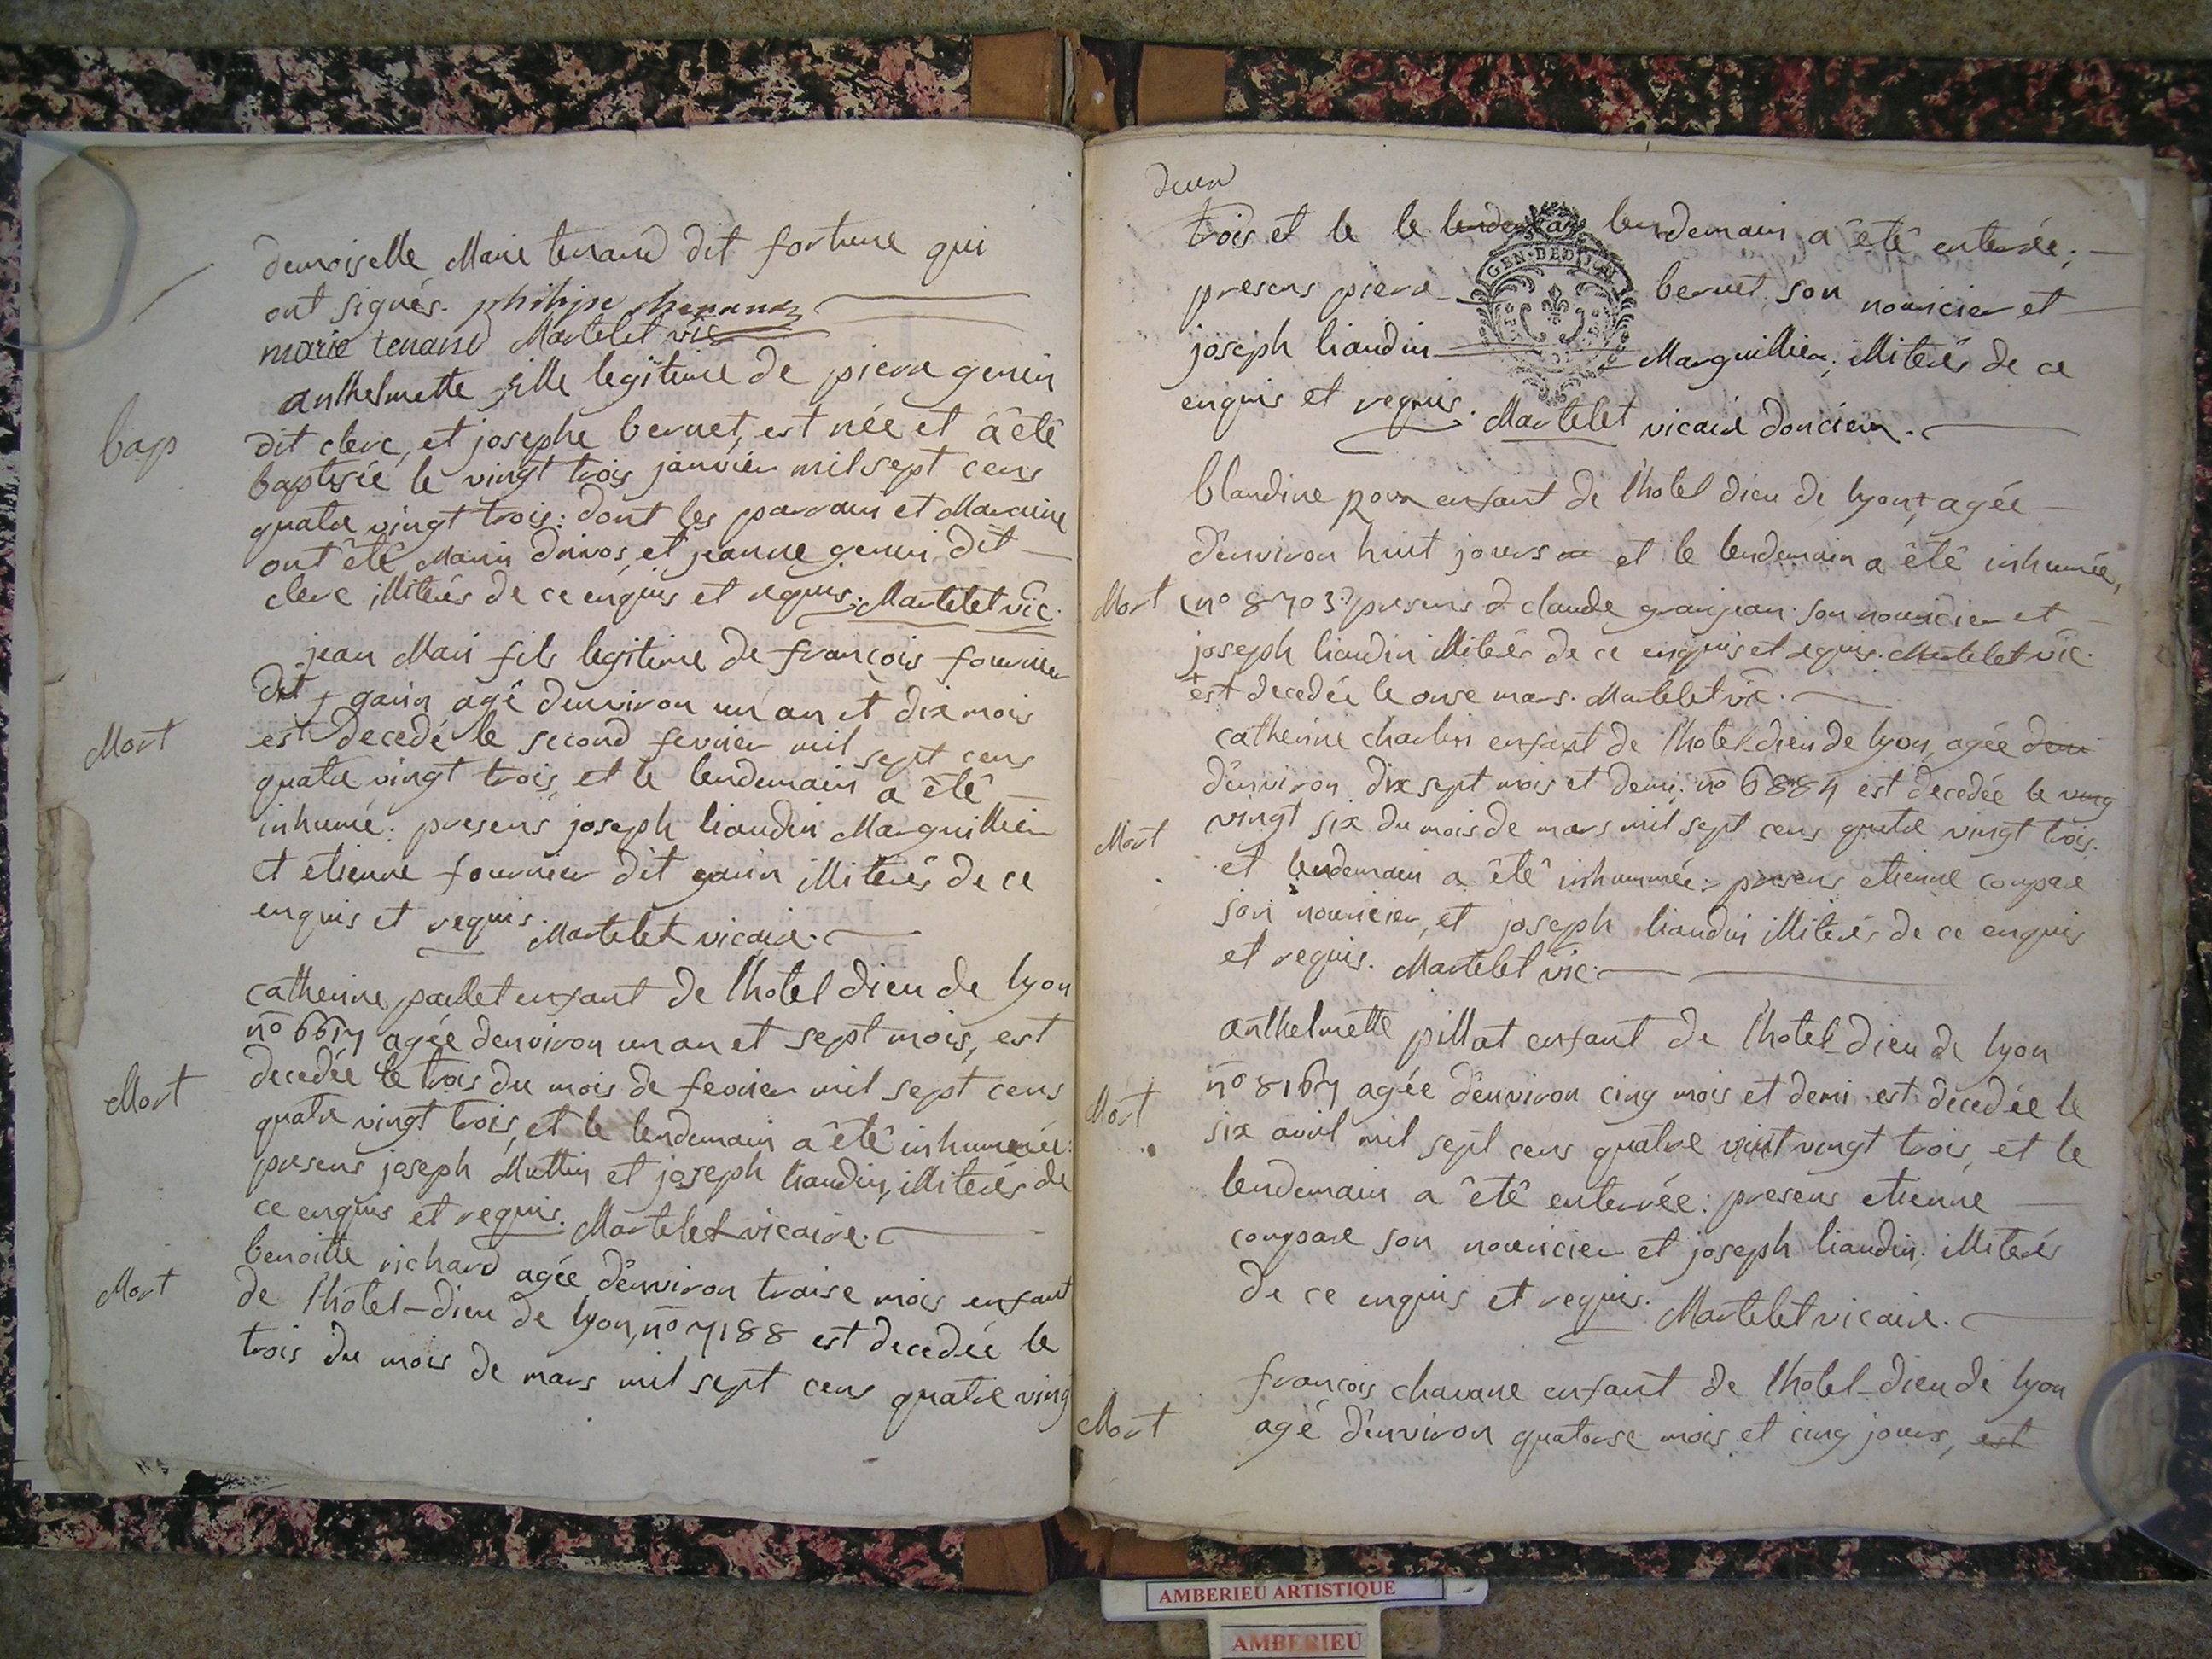 demoiselle Marie tenand dit fortune qui
ont signés. philipe thenand
marie tenand Martelet vic
bap
anthelmette fille legitime de piere genin
dit clerc, et josephe bernet, est née et a été
baptisée le vingt trois janvier mil sept cens
quatre vingt trois: dont les parrain et Maraine
ont été Marin drivos, et jeanne genin dit
clerc illiterés de ce enquis et requis. Martelet vic.
Mort
jean Mari fils legitime de françois fournier
dit garin agé denviron un an et dix mois
est decedé le second fevrier mil sept cens
quatre vingt trois, et le lendemain a été
inhumé: presens joseph liaudin Marguillier
et etienne fournier dit garin illiterés de ce
enquis et requis. Martelet vicaire.
Mort
catherine paillet enfant de lhotel dieu de lyon
no 6617 agée denviron un an et sept mois, est
decedée le trois du mois de fevrier mil sept cens
quatre vingt trois, et le lendemain a été inhumée:
presens joseph Muttin et joseph liaudin, illiterés de
ce enquis et requis. Martelet vicaire.
Mort
benoitte richard agée denviron traise mois enfant
de lhôtel-dieu de lyon, no 7188 est decedée le
trois du mois de mars mil sept cens quatre ving
deux
trois et le le lendemain lendemain a été enterée;
GEN. DE DIJON
presens piere bernet son nouricier et
joseph liaudin Marguillier, illiterés de ce
enquis et requis. Martelet vicaire doncieu.
Mort
blandine roux enfant de lhotel dieu de lyon, + agée
d'environ huit jours et le lendemain a été inhumée,
(no 8703) presens claude granjean son nouricier et
joseph liaudin illiterés de ce enquis et requis. Martelet vic.
+ est decedée le onse mars. Martelet vic.
Mort
catherine charlin enfant de lhotel-dieu de lyon, agée denv
d'environ dix sept mois et demi. no 6884 est decedée le ving
vingt six du mois de mars mil sept cens quatre vingt trois.
et lendemain a été inhummée: presens etienne compare
son nouricier, et joseph liaudin illiterés de ce enquis
et requis. Martelet vic.
Mort
anthelmette pillat enfant de lhotel-dieu de lyon
no 8167 agée d'environ cinq mois et demi est decedée le
six avril mil sept cens quatre vint vingt trois, et le
lendemain a été enterrée: presens etienne
compare son nouricier et joseph liaudin. illiterés
de ce enquis et requis. Martelet vicaire.
Mort
françois chavane enfant de lhotel-dieu de lyon
agé d'environ quatorse mois et cinq jours, est
AMBERIEU ARTISTIQUE
AMBERIEU